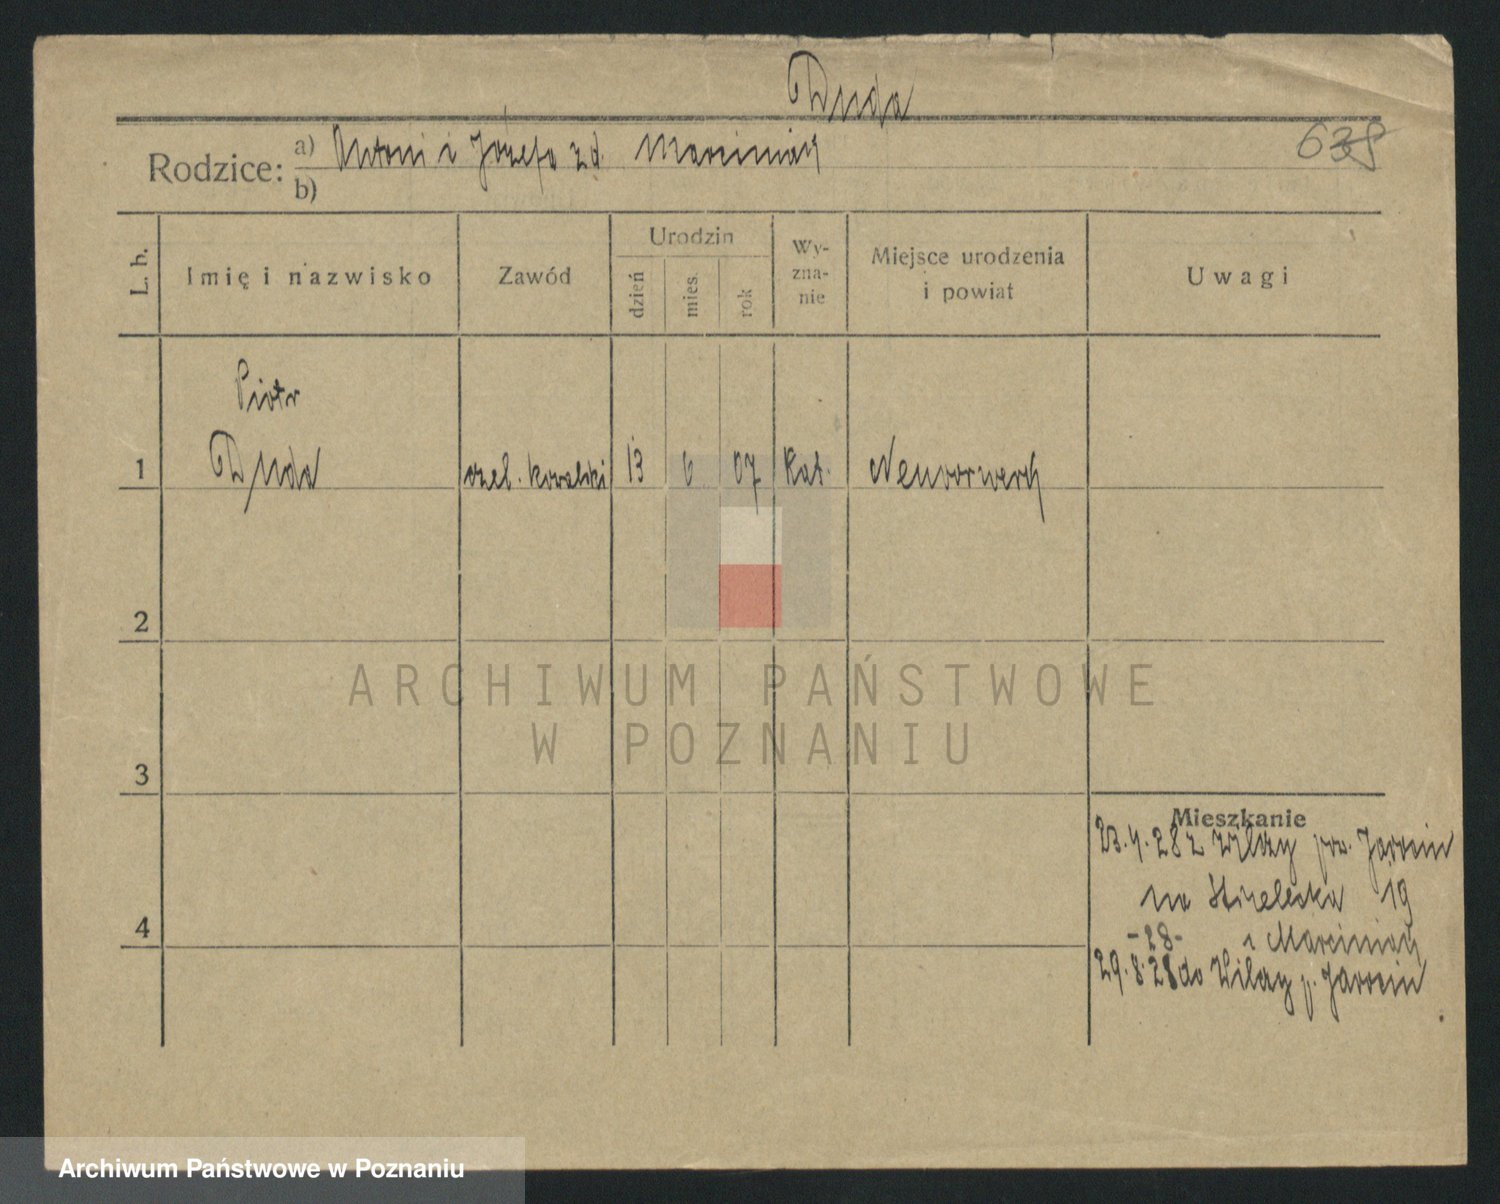 Duda
638
Rodzice: a) Antoni i Józefa z d. Marciniak
b)
L. b. Imię i nazwisko Zawód Urodzin dzień mies. rok Wy-zna-nie Miejsce urodzenia i powiat Uwagi
Piotr
1 Duda czel. kowalski 13 6 07 kat. Neuvorwerk
2
ARCHIWUM PAŃSTWOWE
W POZNANIU
3
Mieszkanie
23.4.28 z Wilczy pow. Jarocin
na Strzelecka 19
4
-28- Marciniak
29.8.28 do Wilczy p. Jarocin
Archiwum Państwowe w Poznaniu